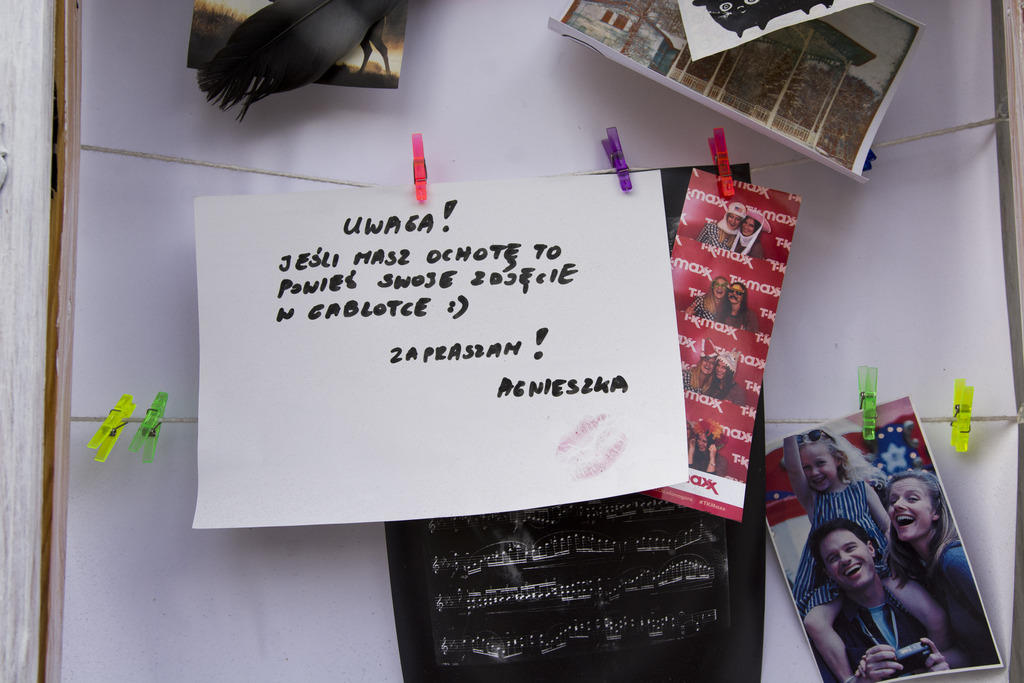 UWAGA!
JEŚLI MASZ OCHOTĘ TO
POWIEŚ SWOJE ZDJĘCIE
W GABLOTCE :)
ZAPRASZAM!
AGNIESZKA
T·K maxx
T·K maxx
T·K maxx
T·K maxx
maxx
#TKMaxx